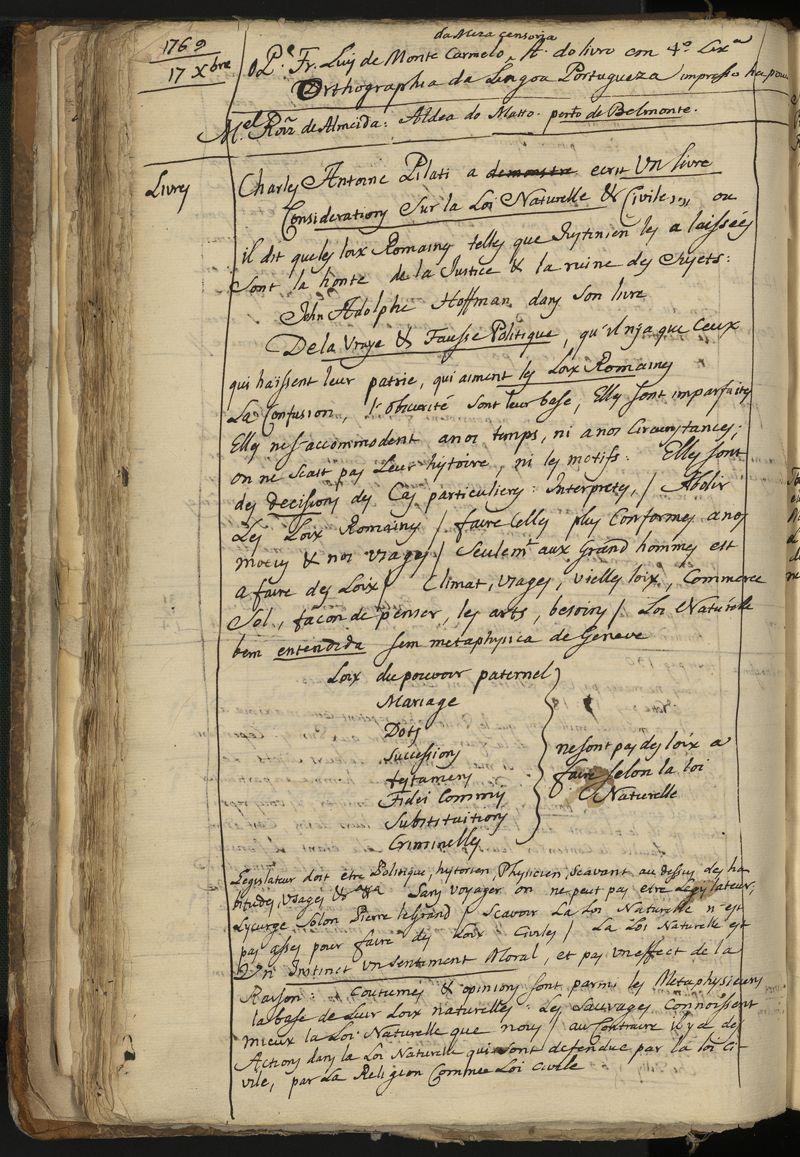 1769
17 Xbre
da Meza censoria
O P.e Fr. Luiz de Monte Carmelo A. do livro con 4º
Orthographia da Lingoa Portugueza impresso ha pou
M.el Roiz de Almeida: Aldea do Matto. perto de Belmonte.
Livres
Charles Antoine Pilati a demonstre ecrit Un livre
Considerations Sur la Loi Naturelle & Civile,,, ou
il dit que les loix Romaines telles que Justinien les a laissées
Sont la honte de la Justice & la ruine des Sujets:
John Adolphe Hoffman dans son livre
De la Vraye & Fausse Politique, qu'il n'ja que Ceux
qui haïssent leur patrie, qui aiment les Loix Romaines
La Confusion, l'obscurité sont leur base, Elles sont imparfaites
Elles ne s'accommodent a nos temps, ni a nos Circonstances;
on ne scait pas Leur histoire, ni les motifs. Elles sont
des decisions des Cas particuliers: Interpretes, / Abolir
Les Loix Romaines / faire celles plus Conformes a nos
moeurs & nos Usages / Seulemt aux Grand hommes est
a faire des Loix / Climat, Usages, vielles loix, Commerce
Sol, façon de penser, les arts, besoins / Loi Naturelle
bem entendida sem metaphysica de Geneve
Loix du pouvoir paternel
Mariage
Dots
Successions
testamens
Fidei Commis
Substituitions
Criminelles
ne sont pas des loix a
faire selon la loi
Naturelle
Legislateur doit étre Politique, historien, Physicien, Scavant au dessus des ha
bitudes, Usages &a &a Sans voyager on ne peut pas etre Legislateur,
Lycurge Solon Pierre le Grand / Scavoir La Loi Naturelle n'est
pas assés pour faire des Loix Civiles / La Loi Naturelle est
Un Instinct Un Sentament Moral, et pas Un effect de la
Raison: Coutumes & opinions sont parmi les Metaphysiciens
la base de Leur Loix naturelles. Les Sauvages Connoissent
mieux la Loi Naturelle que nous / au Contraire il y a des
Actions dans la Loi Naturelle qui sont defendue par la loi Ci-
vile, par La Religion Comme Loi Civile